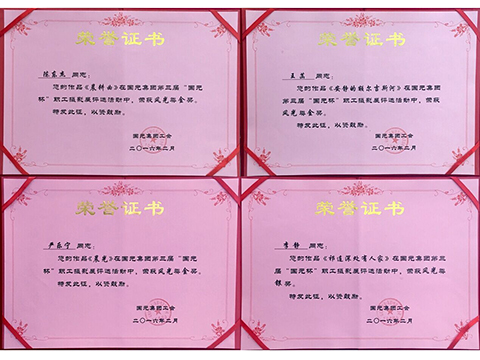 荣誉证书
陈东杰 同志：
您的作品《晨耕曲》在国光集团第三届“国光
杯”职工摄影展评选活动中，荣获风光每金奖。
特发此证，以资鼓励。
国光集团工会
二〇一六年二月
荣誉证书
王其 同志：
您的作品《安静的额尔古纳河》在国光集
团第三届“国光杯”职工摄影展评选活动中，荣获
风光每金奖。
特发此证，以资鼓励。
国光集团工会
二〇一六年二月
荣誉证书
严乐宁 同志：
您的作品《晨光》在国光集团第三届“国光
杯”职工摄影展评选活动中，荣获风光每金奖。
特发此证，以资鼓励。
国光集团工会
二〇一六年二月
荣誉证书
李静 同志：
您的作品《祁连深处有人家》在国光集团
第三届“国光杯”职工摄影展评选活动中，荣获风光每
银奖。
特发此证，以资鼓励。
国光集团工会
二〇一六年二月